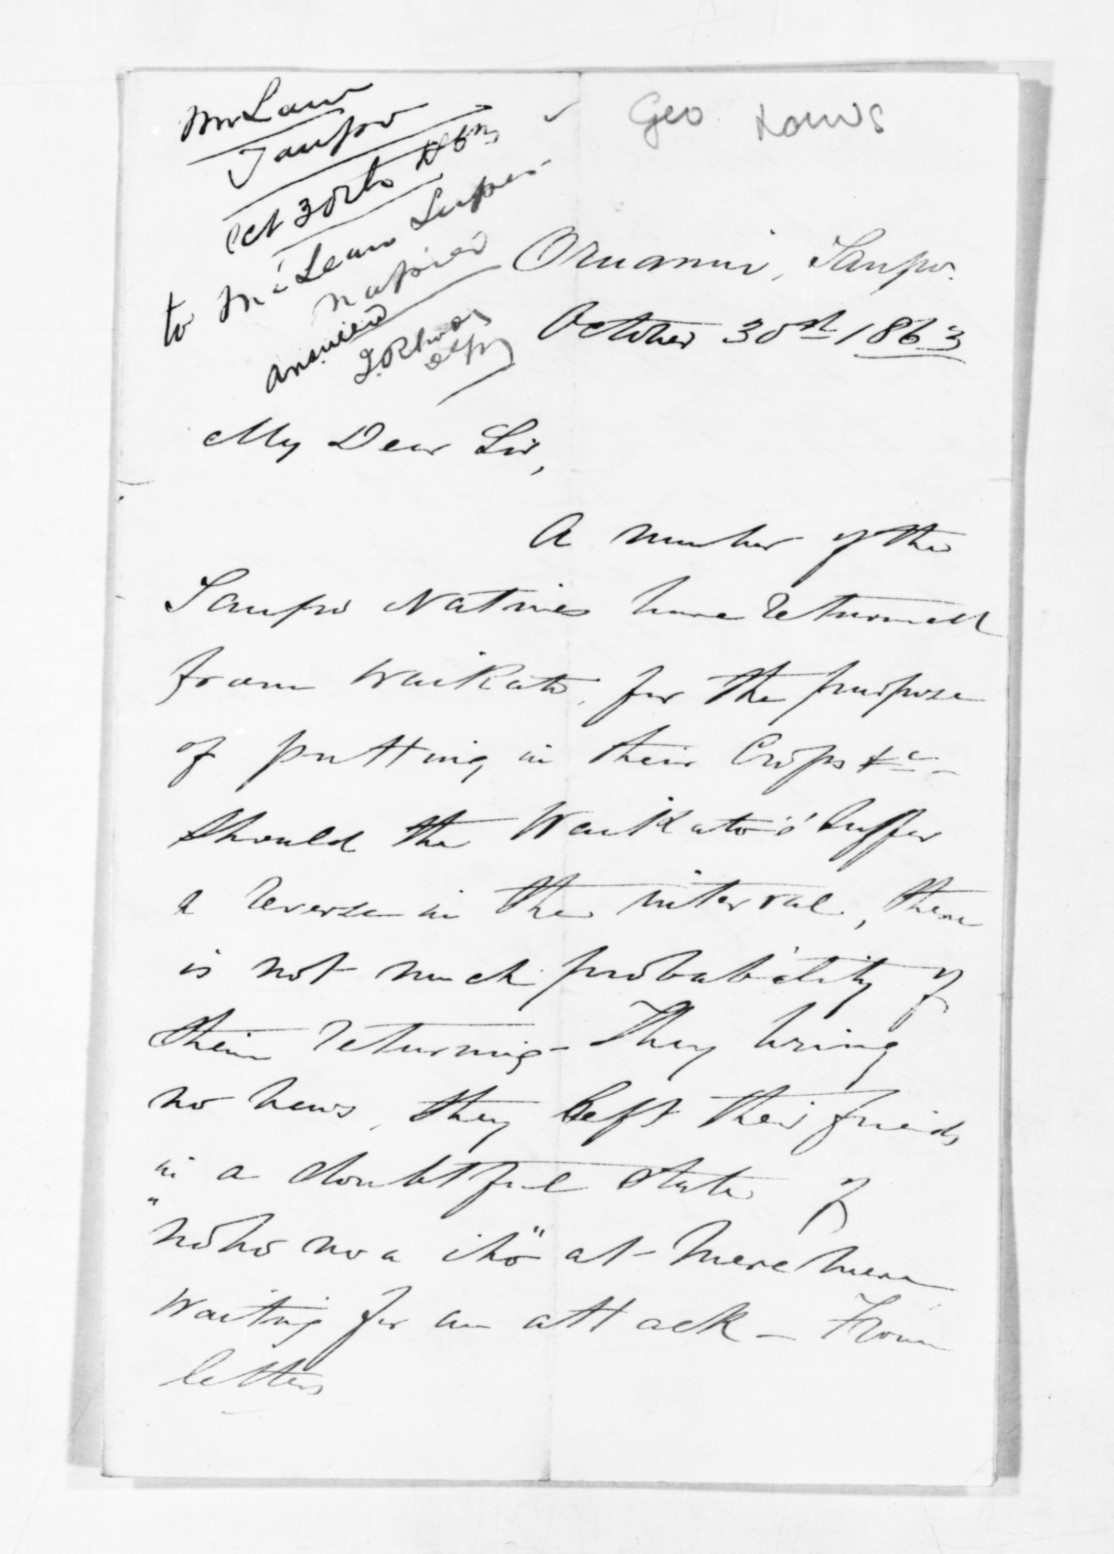 Mr Law
Taupo
Oct 30th
to McLean Super
Napier
answered
Geo Laws
Oruanui, Taupo.
October 30st 1863
My Dear Sir,
A number of the
Taupo Natives have returned
from Waikato, for the purpose
of putting in their Crops &c -
Should the Waikato's suffer
a reverse in the interval, there
is not much probability of
their returning - They bring
no news, they left their friends
in a doubtful state of
"noho noa iho" at - Mere Mere
waiting for an attack - From
letters